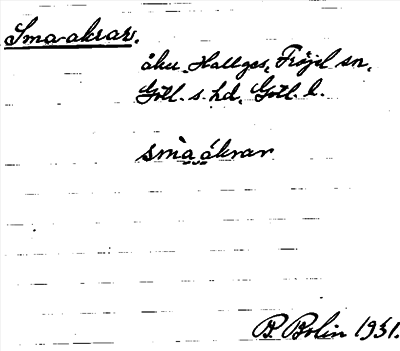 Sma-akrar.
åker, Hallges, Fröjel sn,
Gotl. s. hd, Gotl. l.
smàákrar
B. Bolin 1931.